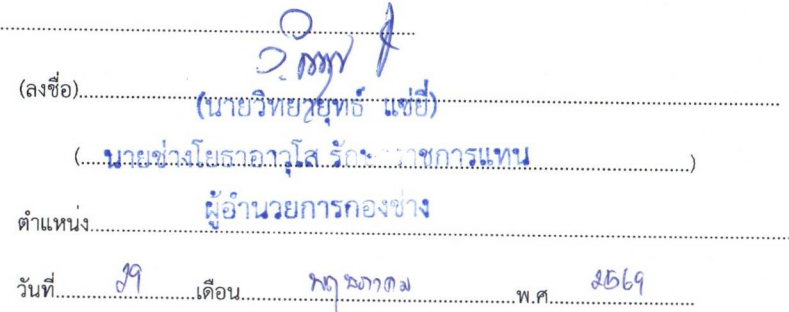 (ลงชื่อ)
(นายวิทยายุทธ์ แซ่ยี่)
(นายช่างโยธาอาวุโส รักษาราชการแทน)
ตำแหน่ง ผู้อำนวยการกองช่าง
วันที่ 29 เดือน พฤษภาคม พ.ศ. 2569